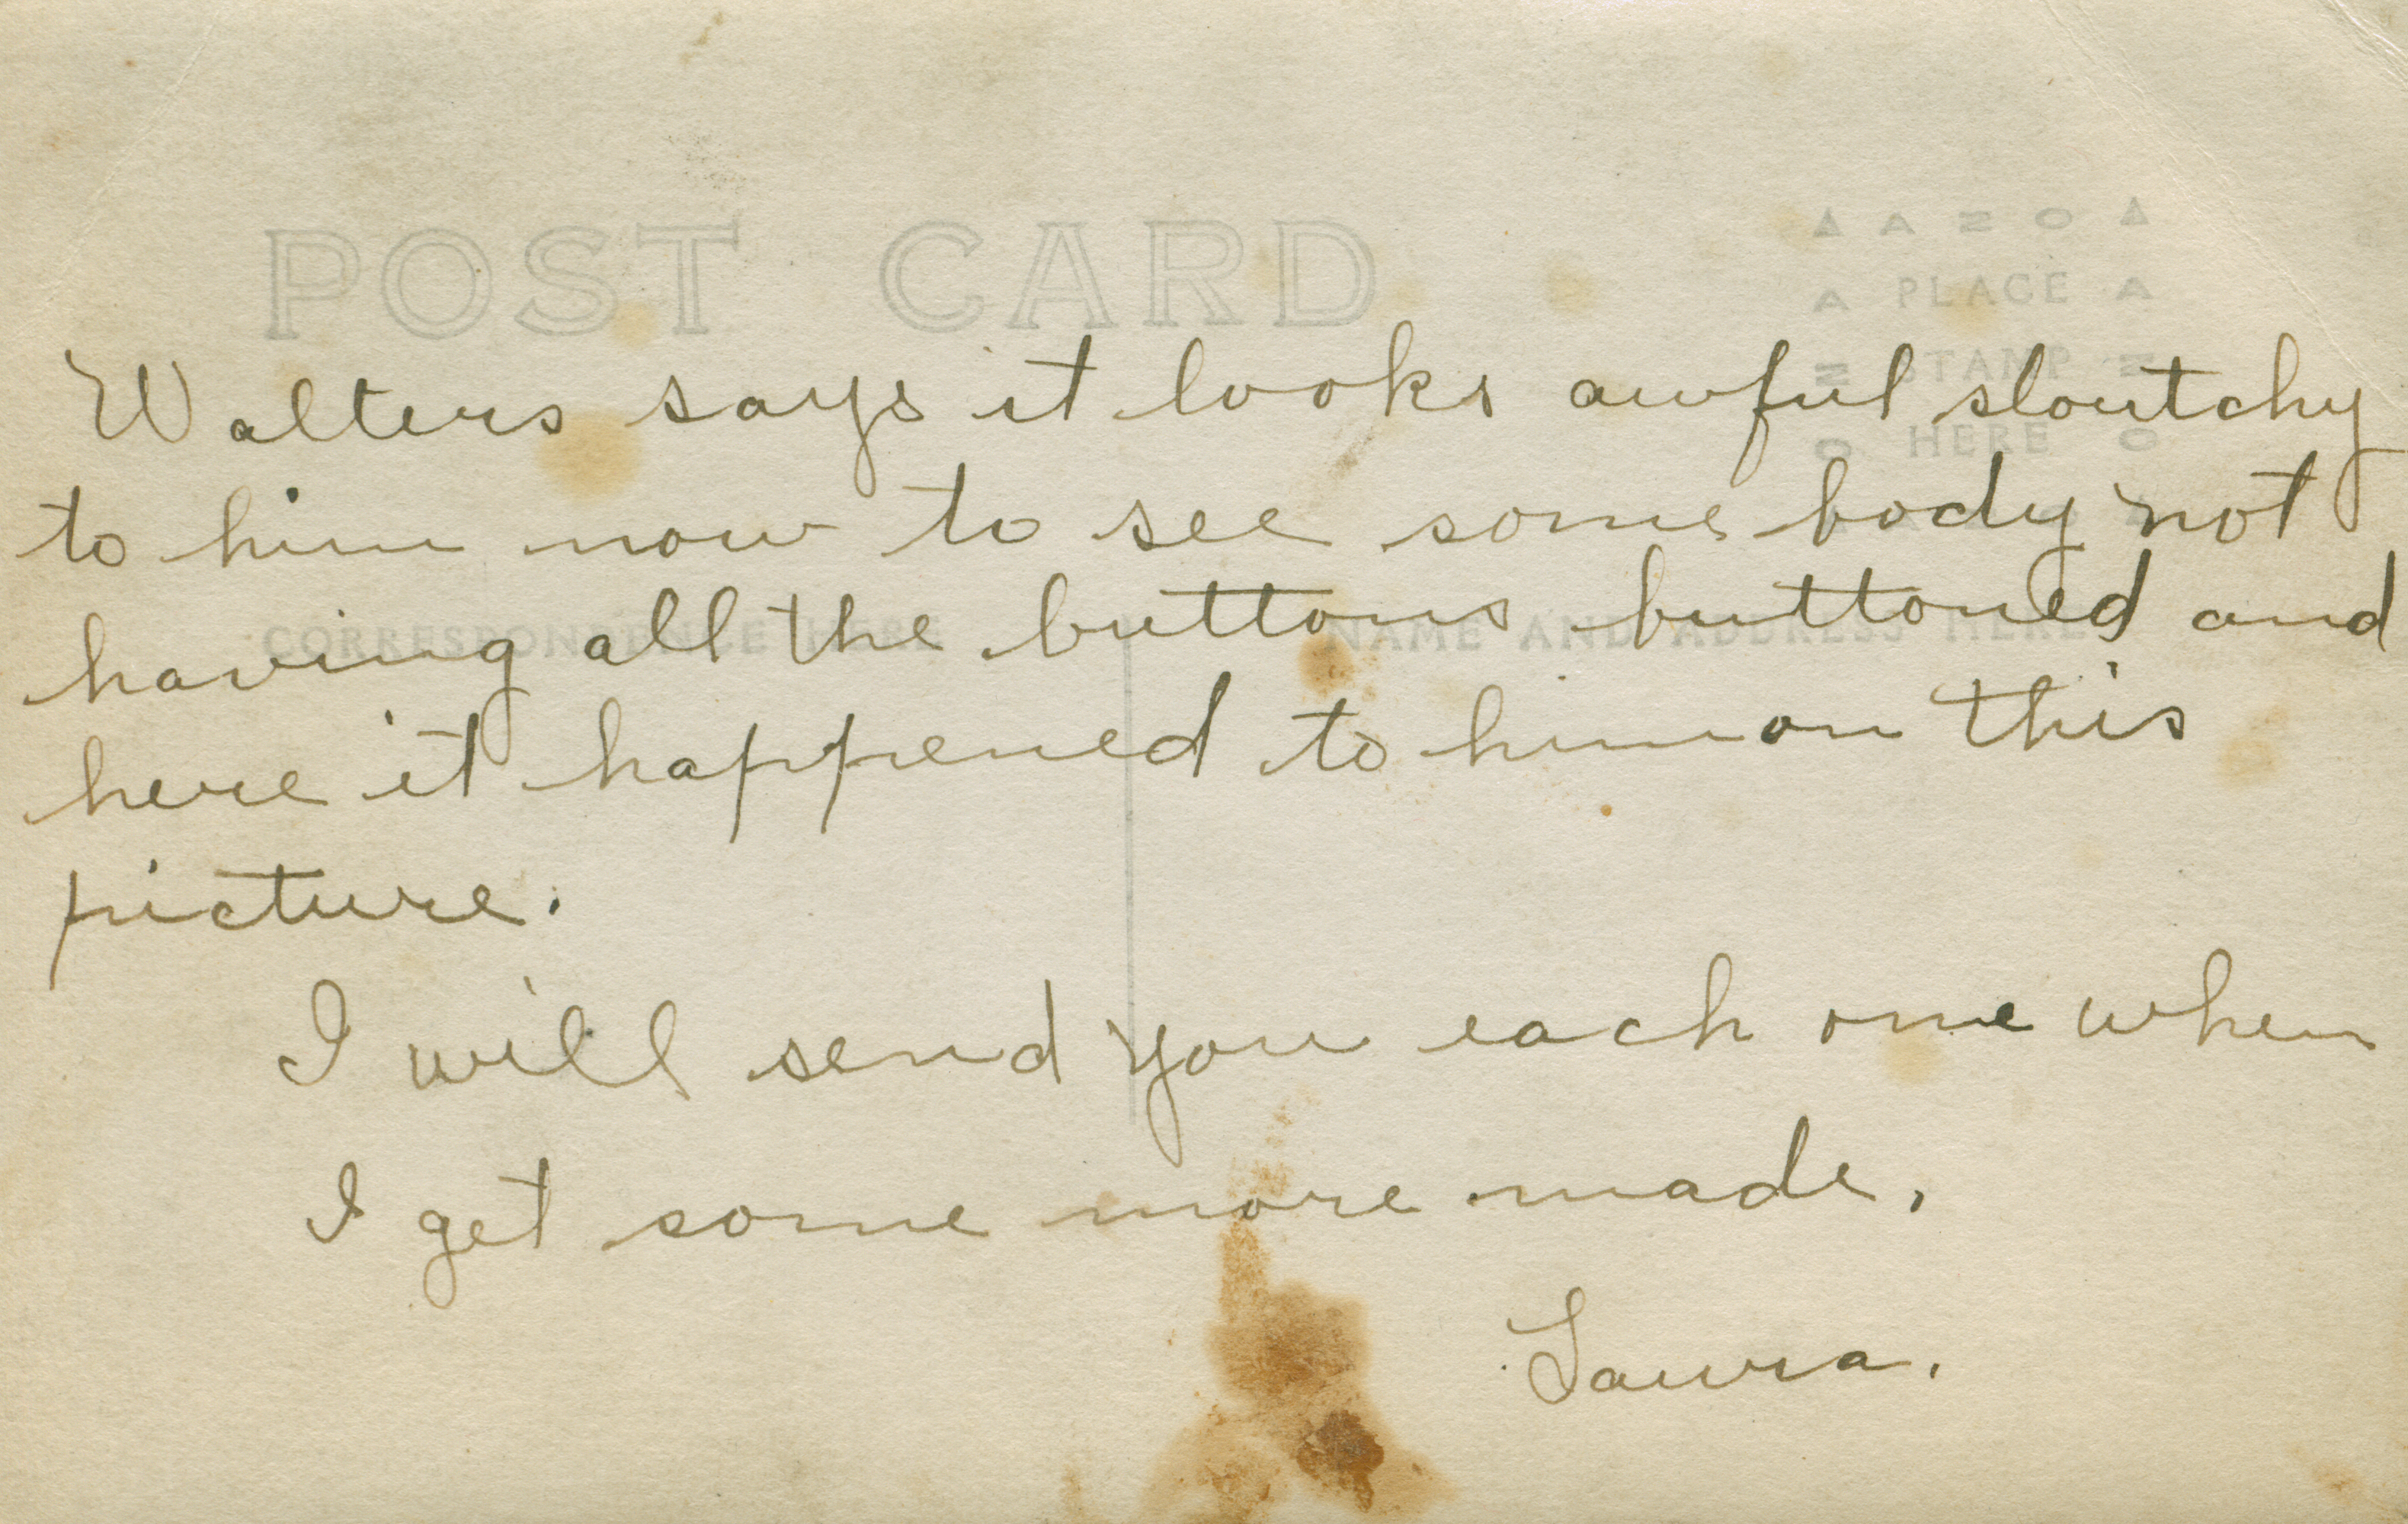 POST CARD
A N O
PLACE
STAMP
HERE
Walters says it looks awful sloutchy
to him now to see some body not
CORRESPONDENCE HERE
NAME AND ADDRESS HERE
having all the buttons buttoned and
here it happened to him on this
picture.
I will send you each one when
I get some more made.
Laura.